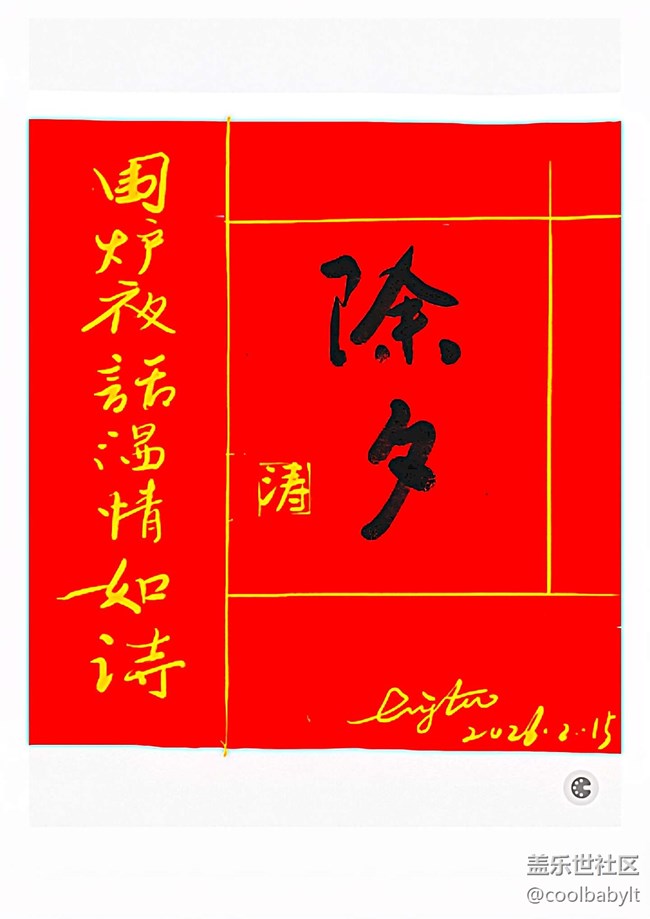 除夕
围炉夜話温情如诗
涛
2026.2.15
盖乐世社区
@coolbabylt